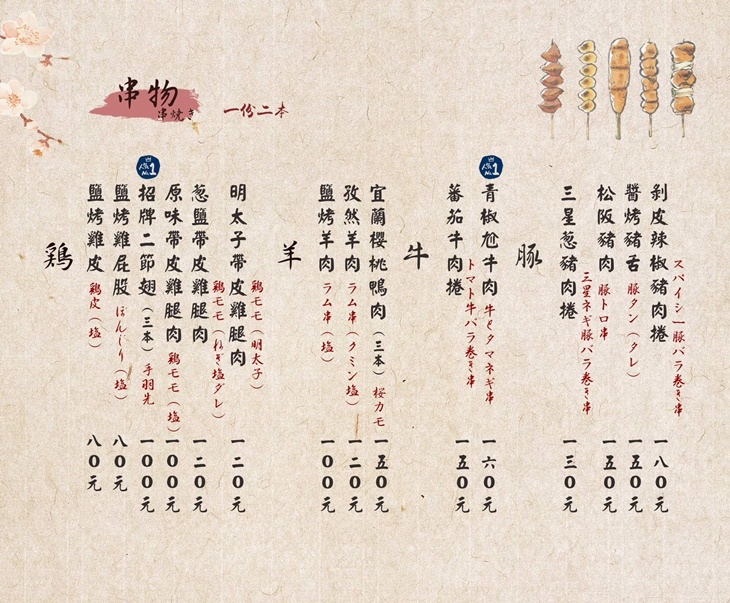 串物
串焼き
一份二本
豚
剝皮辣椒豬肉捲
スパイシー豚バラ巻き串
一八0元
醬烤豬舌
豚タン(タレ)
一五0元
松阪豬肉
豚トロ串
一五0元
三星葱豬肉捲
三星ネギ豚バラ巻き串
一三0元
牛
人気
No.1
青椒尬牛肉
牛とタマネギ串
一六0元
蕃茄牛肉捲
トマト牛バラ巻き串
一五0元
羊
宜蘭櫻桃鴨肉(三本)
桜カモ
一五0元
孜然羊肉
ラム串(クミン塩)
一二0元
鹽烤羊肉
ラム串(塩)
一00元
鶏
明太子帶皮雞腿肉
鶏モモ(明太子)
一二0元
葱鹽帶皮雞腿肉
鶏モモ(ねぎ塩ダレ)
一二0元
原味帶皮雞腿肉
鶏モモ(塩)
一00元
人気
No.1
招牌二節翅(三本)
手羽先
一00元
鹽烤雞屁股
ぼんじり(塩)
八0元
鹽烤雞皮
鶏皮(塩)
八0元